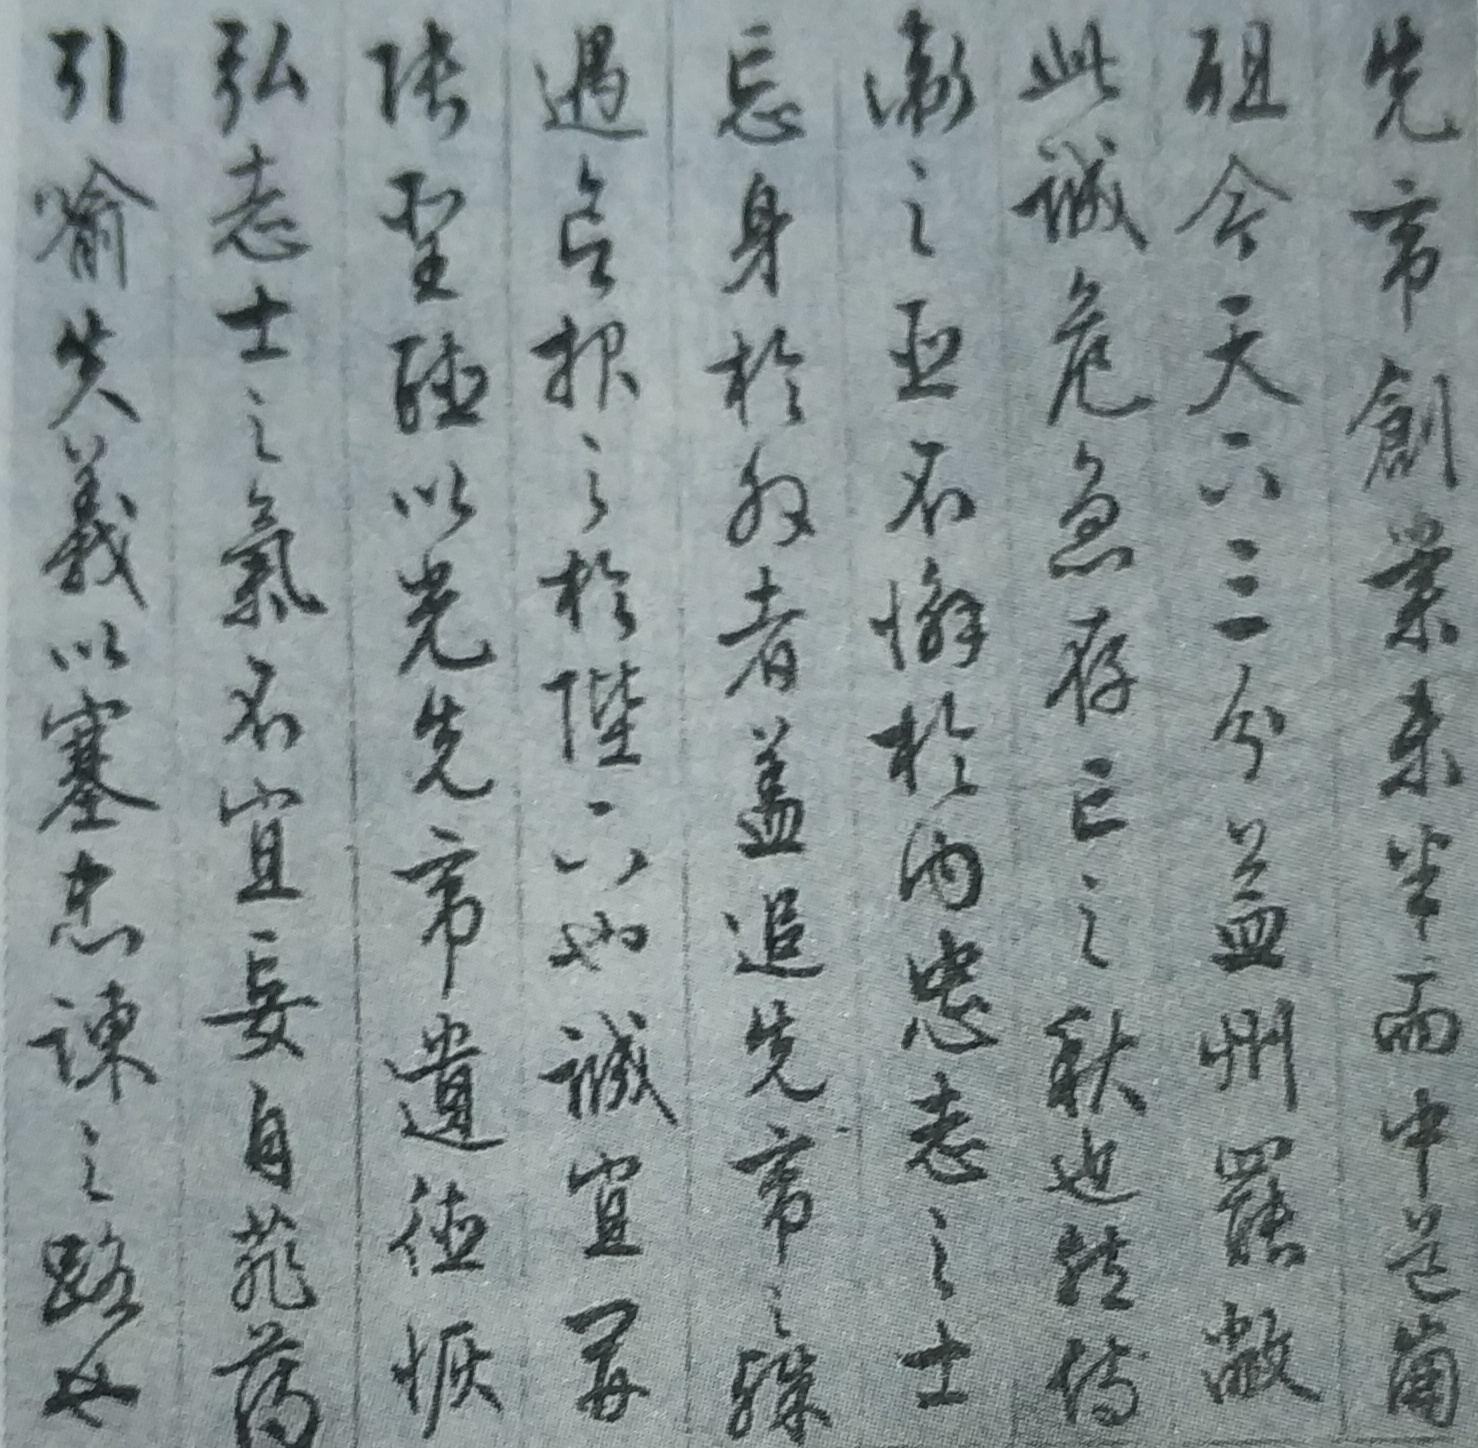 先帝創業未半而中道崩
殂今天下三分益州罷敝
此誠危急存亡之秋也然侍
衛之臣不懈於內忠志之士
忘身於外者蓋追先帝之殊
遇報之於陛下也誠宜開
張聖聽以光先帝遺德恢
弘志士之氣不宜妄自菲薄
引喻失義以塞忠諫之路也